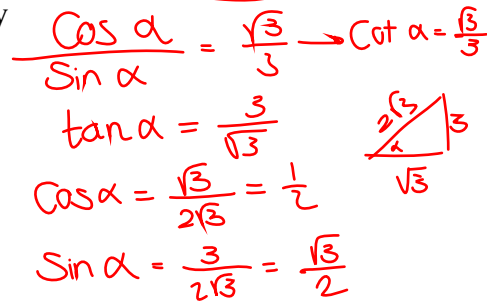 cos α / sin α = √3/3 → Cot α = √3/3
tan α = 3/√3
2√3 3
α
√3
Cos α = √3/2√3 = 1/2
Sin α = 3/2√3 = √3/2